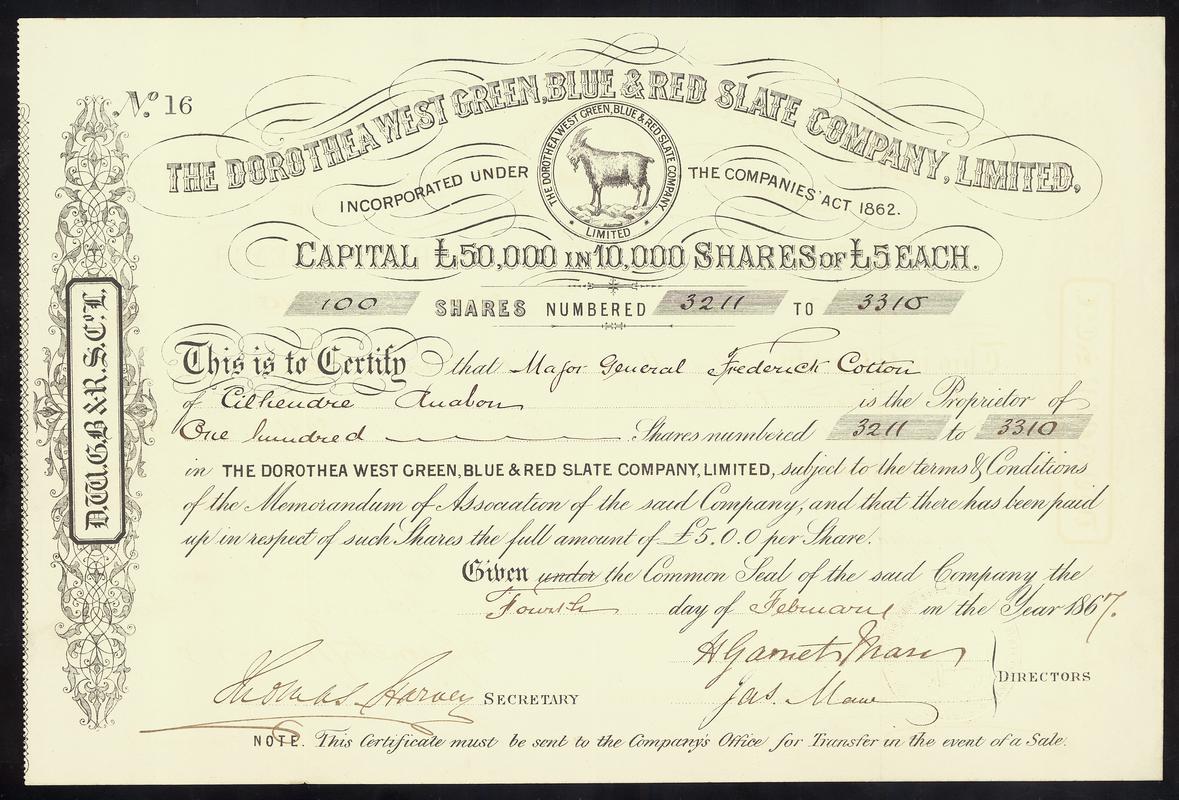 No. 16
THE DOROTHEA WEST GREEN, BLUE & RED SLATE COMPANY, LIMITED,
THE DOROTHEA WEST GREEN, BLUE & RED SLATE COMPANY
LIMITED
INCORPORATED UNDER THE COMPANIES' ACT 1862.
CAPITAL £50,000 IN 10,000 SHARES OF £5 EACH.
100 SHARES NUMBERED 3211 TO 3310
This is to Certify that Major General Frederick Cotton
of Cilhendre Ruabon is the Proprietor of
One hundred Shares numbered 3211 to 3310
in THE DOROTHEA WEST GREEN, BLUE & RED SLATE COMPANY, LIMITED, subject to the terms & Conditions
of the Memorandum of Association of the said Company, and that there has been paid
up in respect of such Shares the full amount of £5.0.0 per Share.
Given under the Common Seal of the said Company the
Fourth day of February in the Year 1867.
Thomas Harvey SECRETARY
H Garnet Mason
Jas. Maw
DIRECTORS
NOTE. This Certificate must be sent to the Company's Office for Transfer in the event of a Sale.
D.W.G.B & R.S.Co. L.